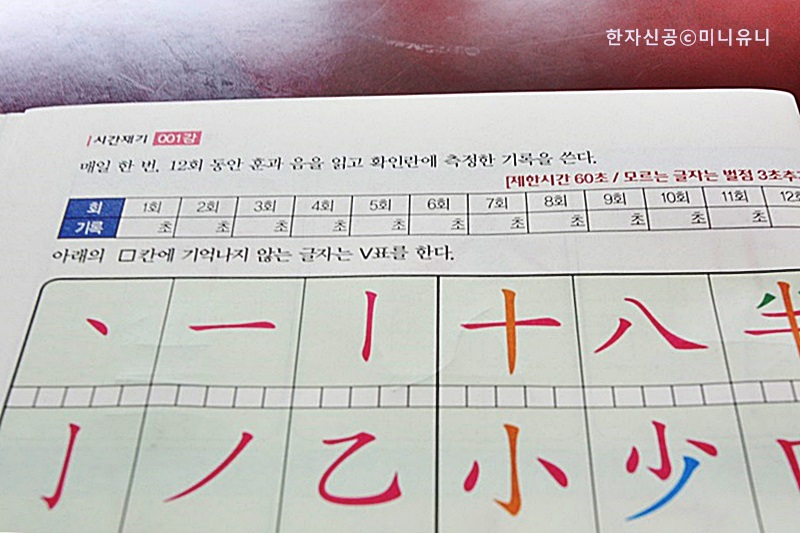 한자신공ⓒ미니유니
시간재기 001강
매일 한 번, 12회 동안 훈과 음을 읽고 확인란에 측정한 기록을 쓴다.
[제한시간 60초 / 모르는 글자는 벌점 3초추
회 1회 2회 3회 4회 5회 6회 7회 8회 9회 10회 11회 12회
기록 초 초 초 초 초 초 초 초 초 초 초
아래의 □칸에 기억나지 않는 글자는 V표를 한다.
丶 一 丨 十 八 半
亅 丿 乙 小 少